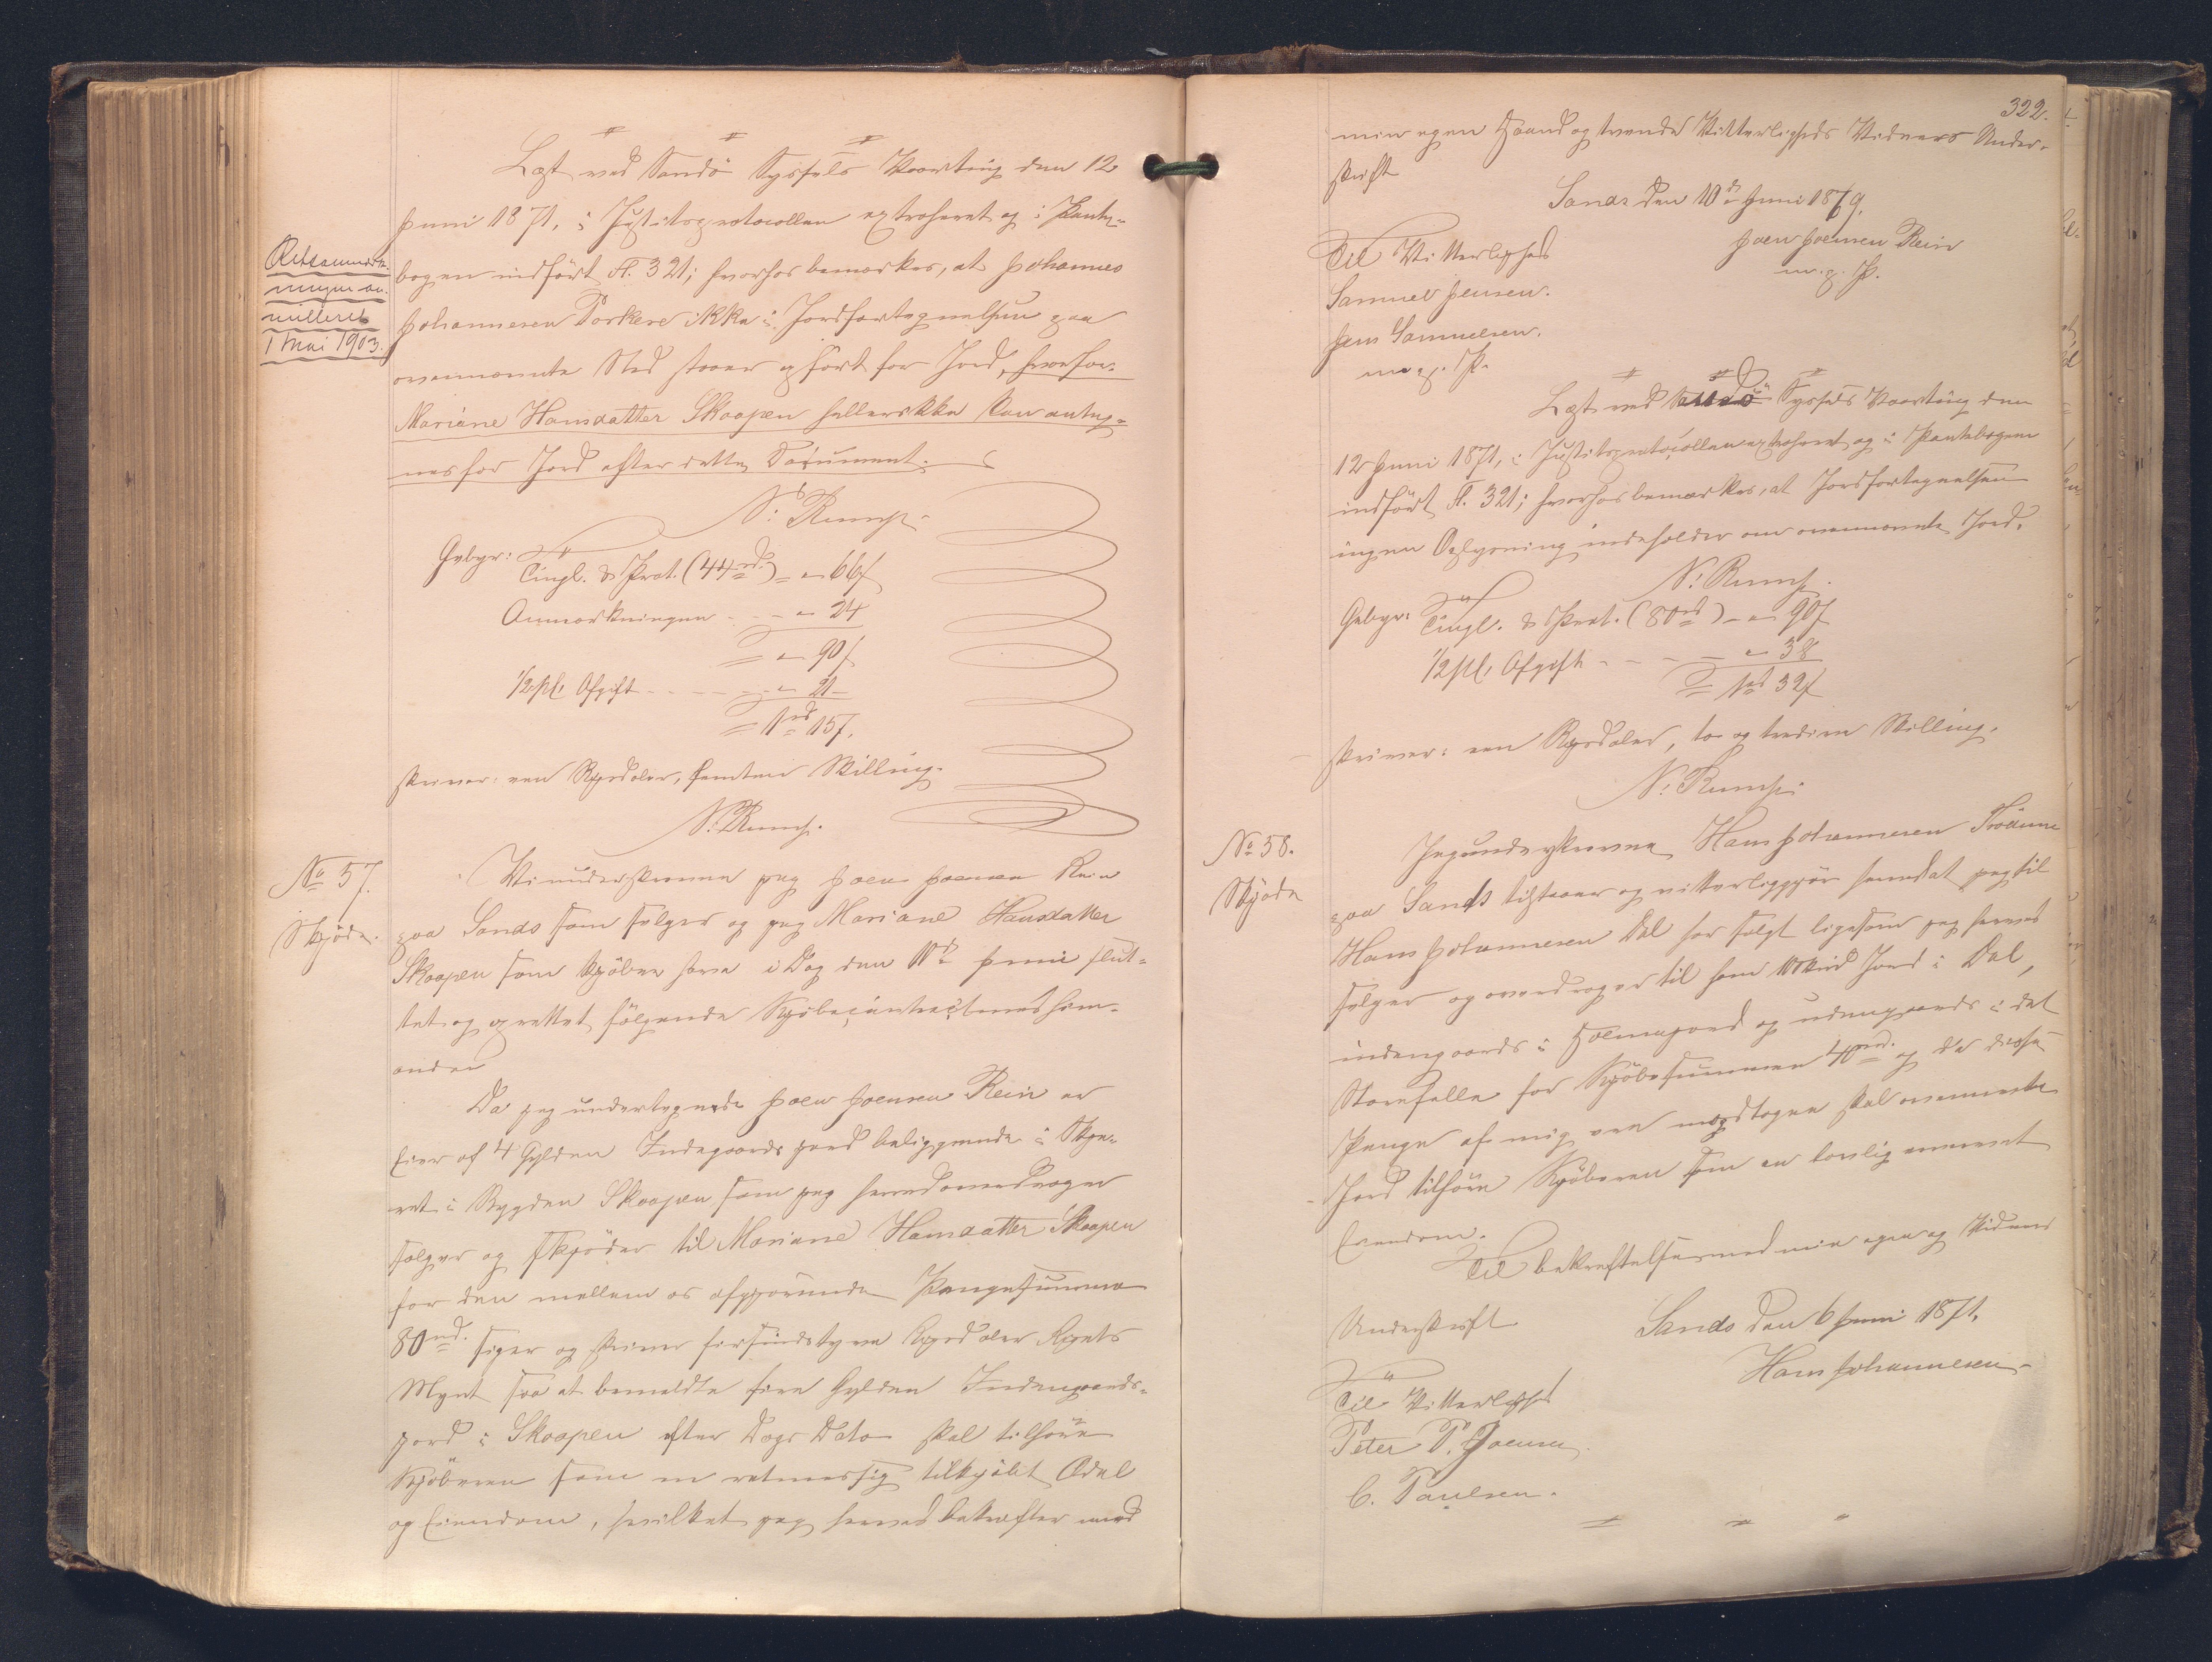 Læst ved Sandö Syssels Vaarting den 12
Juni 1871, i Justitsprotocollen extraheret og i Pante-
bogen indført Fl. 321; hvorhos bemærkes, at Johannes
Johannesen Porkere ikke i Jordfortegnelsen paa
ovennævnte Sted staaer opført for Jord, hvorfor
Mariane Hansdatter Skaapen hellerikke kan anteg-
nes for Jord efter dette Document.
Retsanmærk-
ningen an-
nulleret
1 Mai 1903.
N. Rump
Gebyr: Tingl. & Prot. (44 rd.) = " 66 s
Anmærkningen - - " 24
= " 90 s
1/2 pCt Afgift - - - - " 21
= 1 rd 15 s.
skriver: een Rigsdaler, femten Skilling.
N. Rump.
No 57.
Skjöde.
Vi underskrevne jeg Joen Joensen Rein
paa Sands som sælger og jeg Mariane Hansdatter
Skaapen som kjöber have i Dag den 10de Juni slut-
tet og oprettet følgende Kjöbecontract med hin-
anden
Da jeg undertegnede Joen Joensen Rein er
Eier af 4 Gylden Indegaards jord beliggende i
i Bygden Skaapen som jeg herved overdrager
sælger og skjöder til Mariane Hansdatter Skaapen
for den mellem os afgjorende Pengesumma
80 rd. siger og skriver firsindstyve Rigsdaler Rigets
Mynt saa at bemeldte fire Gylden Indengaards-
jord i Skaapen efter Dags Dato skal tilhöre
Kjöberen som en retmessig tilkjöbt Odel
og Eiendom, hvilket jeg herved bekræfter med
322.
min egen Haand og tvende Vitterligheds Vidners Under-
skrift
Sands den 10de Juni 1869.
Til Vitterlighed
Joen Joensen Rein
m. p. P.
Samuel Jensen.
Jens Samuelsen.
m. p. P.
Læst ved Sandö Syssels Vaarting den
12 Juni 1871, i Justitsprotocollen extraheret og i Pantebogen
indført Fl. 321; hvorhos bemærkes, at Jordfortegnelsen
ingen Oplysning indeholder om ovennævnte Jord.
N. Rump.
Gebyr: Tingl. & Prot. (80 rd) - " 90 s
1/2 pCt Afgift - - - - " 38
= 1 rd 32 s
skriver: een Rigsdaler, to og tredive Skilling.
N. Rump.
No 58.
Skjöde
Jeg underskrevne Hans Johannesen
paa Sands tilstaaer og vitterliggjör herved at jeg til
Hans Johannesen Dal har solgt ligesom jeg herved
sælger og overdrager til ham 10 Skind Jord i Dal,
indengaards i og udengaards i det
Storefelle for Kjöbesummen 40 rd. og da disse
Penge af mig ere modtagne skal ovennævnte
Jord tilhöre Kjöberen som en lovlig erhvervet
Eiendom.
Til bekræftelse med min egen og Vidners
Underskrift
Sands den 6 Juni 1871.
Hans Johannesen
Til Vitterlighed
Peter P. Joensen.
C. Poulsen.